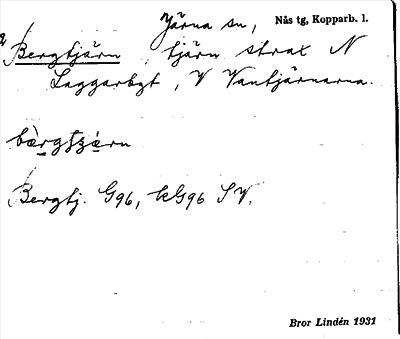 Järna sn, Nås tg, Kopparb. l.
Bergtjärn, tjärn strax N
Laggarbyt, V Vantjärnarna.
Bergtj. G96, kG96 SV.
Bror Lindén 1931